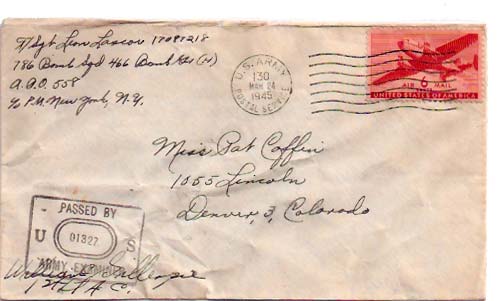 T/Sgt Leon 17087218
786 Bomb Sqd 466 Bomb Gp (H)
A.P.O. 558
c/o P.M. New York, N.Y.
U.S. ARMY
130
MAR 24
1945
POSTAL SERVICE
6
AIR MAIL
UNITED STATES OF AMERICA
Miss Pat Coffin
1055 Lincoln
Denver, 3, Colorado
PASSED BY
U 01327 S
ARMY EXAMINER
William
1st Lt A.C.